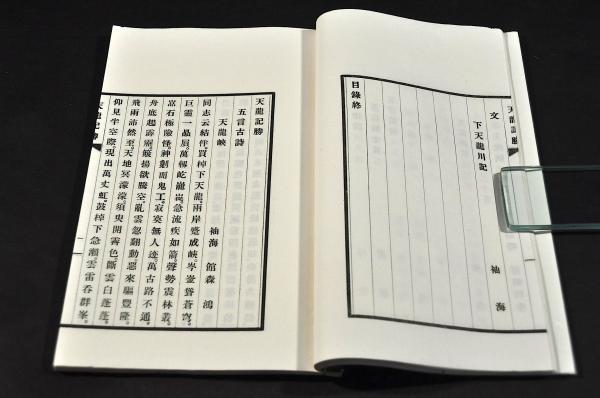 文
下天龍川記
袖海
目錄終
天龍記勝
天龍記勝
五言古詩
天龍峽
袖海 館森 鴻
同志云結伴買棹下天龍兩岸蹙成峽岑崟聳蒼穹
巨靈一贔屓萬樹屹巃嵸急流疾如箭聲勢震林叢
富石極險怪神剜而鬼工寂寞無人迹萬古路不通
舟底起霹靂簸揚欲騰空亂雲忽翻動惡來驅豐隆
飛雨沛然至天地冥濛濛須臾開霽色斷雲白蓬蓬
仰見半空際現出萬丈虹鼓棹下急瀨雲雷吞群峯
天龍記勝